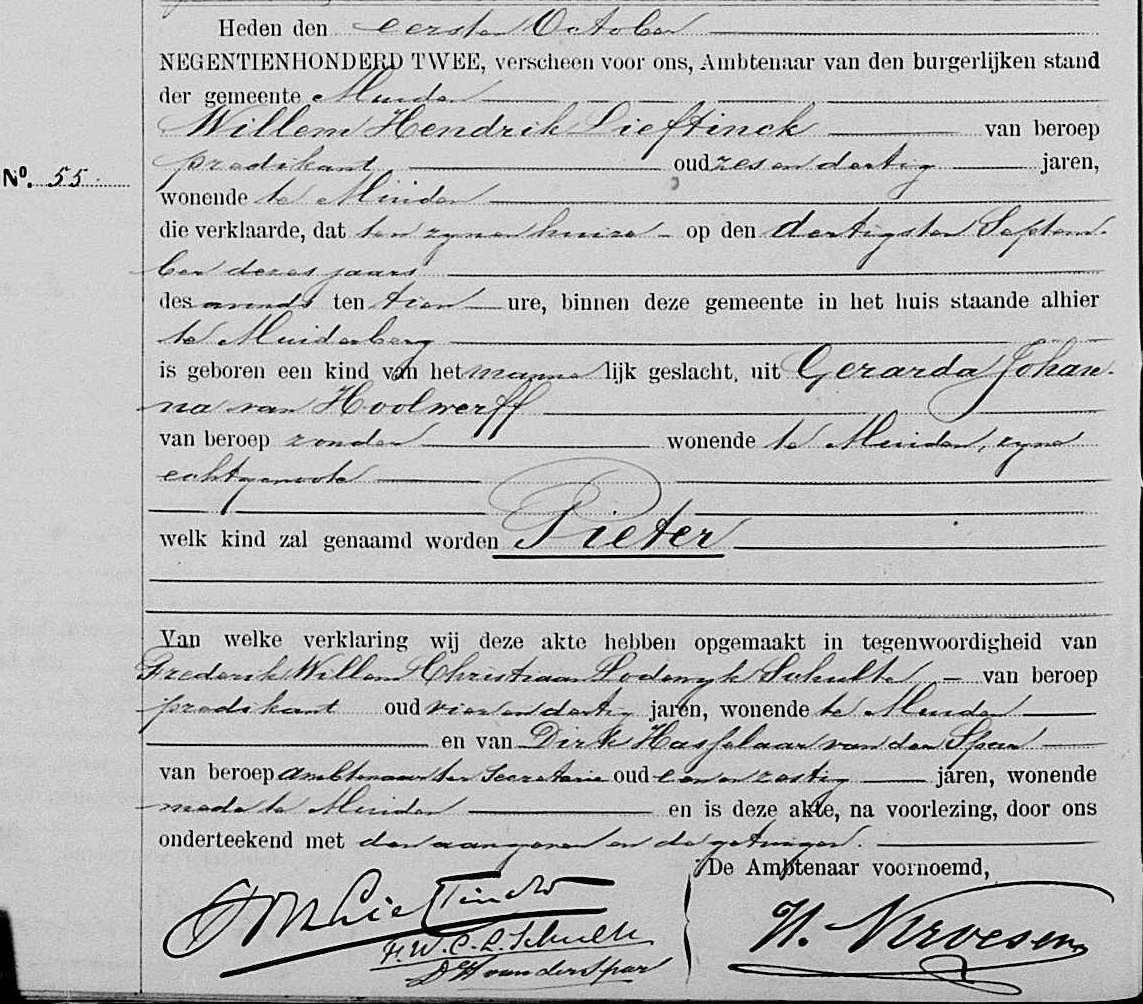 Heden den eersten October
NEGENTIENHONDERD TWEE, verscheen voor ons, Ambtenaar van den burgerlijken stand
der gemeente Muiden
Willem Hendrik Lieftinck van beroep
predikant, oud zes en dertig jaren,
Nº. 55.
wonende te Muiden
die verklaarde, dat ten zynen huize op den dertigsten Septem-
ber dezes jaars
des avonds ten tien ure, binnen deze gemeente in het huis staande alhier
te Muiderberg
is geboren een kind van het manne lijk geslacht, uit Gerarda Johan-
na van Hoolwerff
van beroep zonder wonende te Muiden, zyne
echtgenoote
welk kind zal genaamd worden Pieter
Van welke verklaring wij deze akte hebben opgemaakt in tegenwoordigheid van
Frederik Willem Christiaan Lodewyk Schulte, van beroep
predikant oud vier en dertig jaren, wonende te Muiden
en van Dirk Hasselaar van der Spar
van beroep ambtenaar ter Secretarie oud een en zestig jaren, wonende
mede te Muiden en is deze akte, na voorlezing, door ons
onderteekend met den aangever en de getuigen.
De Ambtenaar voornoemd,
Lieftinck
F.W.C.L. Schulte
D H van der Spar